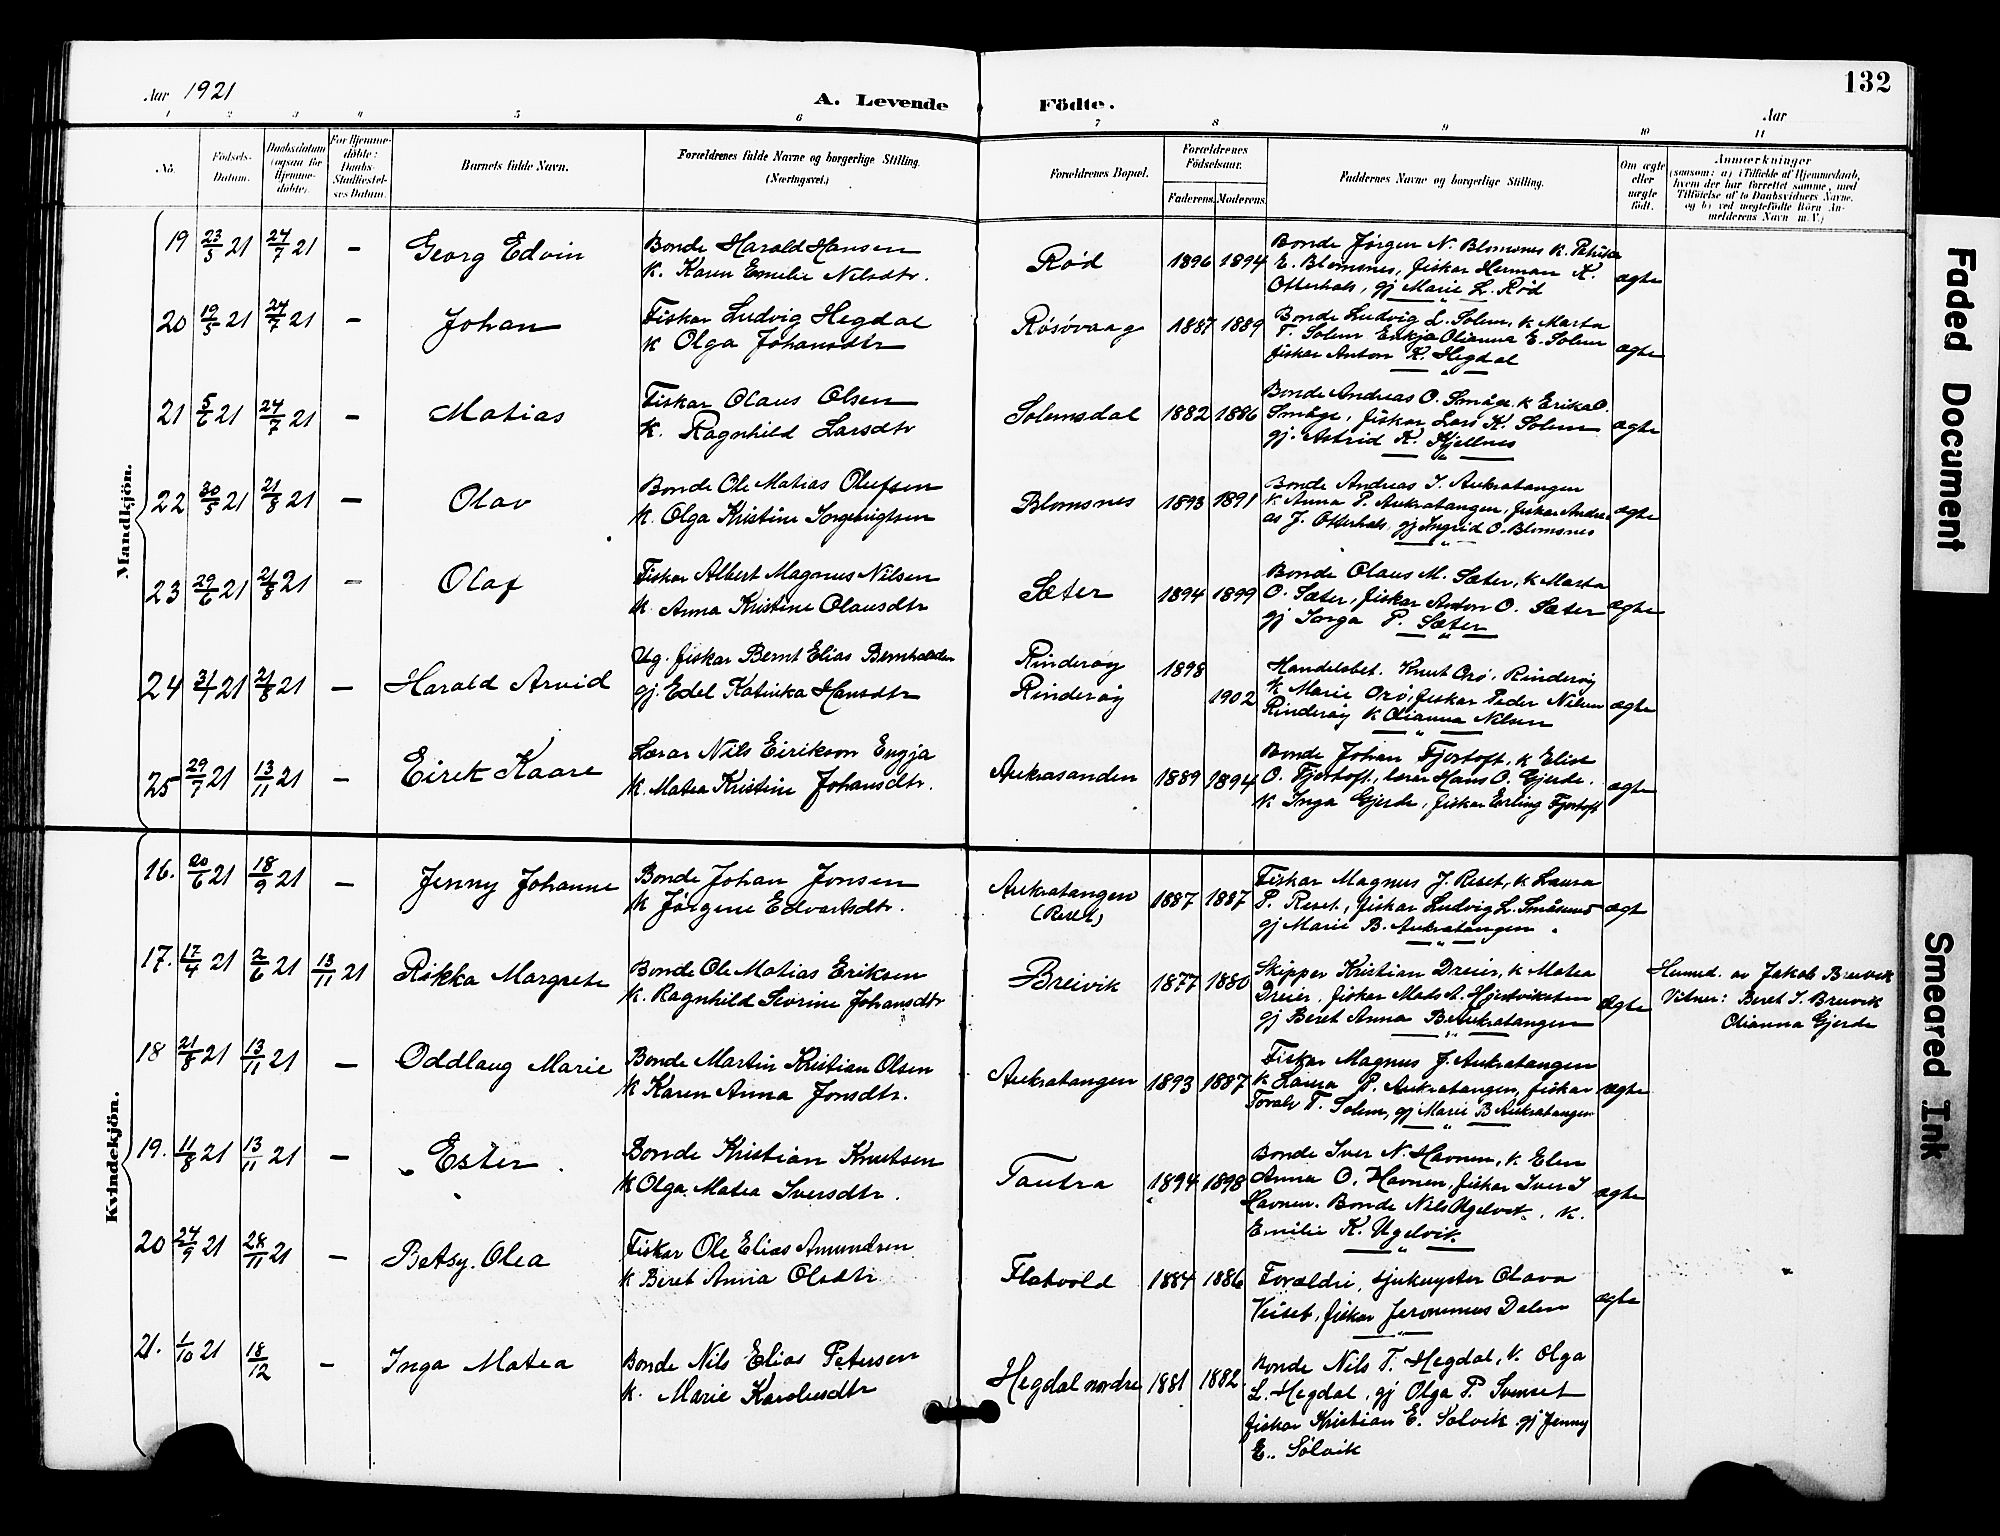 132
Aar 1921
A. Levende Födte.
Aar
1 2 3 4 5 6 7 8 9 10 11
No.
Födsels-
Datum.
Daabsdatum
(ogsaa for
Hjemme-
døbte).
For Hjemme-
døbte:
Daabs-
Stadfæstel-
ses Datum.
Barnets fulde Navn.
Forældrenes fulde Navne og borgerlige Stilling.
(Næringsvei.)
Forældrenes Bopæl.
Forældrenes
Födselsaar.
Faderens. Moderens.
Faddernes Navne og borgerlige Stilling.
Om ægte
eller
uægte
født.
Anmærkninger
(saasom: a) i Tilfælde af Hjemmedaab,
hvem der har forrettet samme, med
Tilföielse af to Daabsvidners Navne.
og b) ved uægtefödte Börn An-
melderens Navn m. V.)
Mandkjön.
19 23/5 21 24/7 21 – Georg Edvin
Bonde Harald Hansen
k. Karen Emelie Nilsdtr.
Rød 1896 1894
Bonde Jørgen N. Blomsnes k. Petrika
E. Blomsnes, fiskar Herman K.
Otterhals, gj Marie L. Rød
ægte
20 19/5 21 24/7 21 – Johan
Fiskar Ludvig Hegdal
k Olga Johansdtr
Røsøvaag 1887 1889
Bonde Ludvig L. Solem, k Marta
T. Solem Enkja Olianna E. Solem
fiskar Anton K. Hegdal
ægte
21 5/6 21 24/7 21 – Matias
Fiskar Olaus Olsen
k. Ragnhild Larsdtr
Solemsdal 1882 1886
Bonde Andreas O. Småge, k Erika O.
Småge, fiskar Lars K. Solem
gj. Astrid K. Kjellnes
ægte
22 30/5 21 21/8 21 – Olav
Bonde Ole Matias Olufsen
k. Olga Kristine Ingebrigtsen
Blomsnes 1893 1891
Bonde Andreas I. Aukratangen
k Anna P. Aukratangen, fiskar Andre-
as J. Otterhals, gj Ingrid O. Blomsnes
ægte
23 29/6 21 21/8 21 – Olaf
Fiskar Albert Magnus Nilsen
k. Anna Kristine Olausdtr
Sæter 1894 1899
Bonde Olaus M. Sæter, k Marta
O. Sæter, fiskar Anton O. Sæter
gj Inga P. Sæter
ægte
24 3/7 21 21/8 21 – Harald Arvid
Ug. fiskar Bernt Elias Berntsen
gj. Edel Katinka Hansdtr
Rinderøy 1898
Rinderøy 1902
Handelsbet. Knut Orø, Rinderøy
k Marie Orø, fiskar Peder Nilsen
Rinderøy k Olianna Nilsen
ægte
25 29/7 21 13/11 21 – Eirek Kaare
Lærar Nils Eirikson Engja
k. Matea Kristine Johansdtr.
Aukrasanden 1889 1894
Bonde Johan Fjortoft, k Elise
O. Fjortoft, lærar Hans O. Gjerde.
k Inga Gjerde, fiskar Erling Fjortoft
ægte
Kvindekjön.
16. 20/6 21 18/9 21 – Jenny Johanne
Bonde Johan Jonsen
k Jørgine Edvartsdtr.
Aukratangen
(Reset)
1887 1887
Fiskar Magnus J. Reset, k Laura
P. Reset, fiskar Ludvig L. Småsund
gj Marie B. Aukratangen
ægt
17. 17/4 21 2/6 21 13/11 21 Rikka Margrete
Bonde Ole Matias Eriksen
k. Ragnhild Sevrine Johansdtr
Breivik 1877 1880
Skipper Kristian Dreier, k Matea
Dreier, fiskar Mads A. Hjertviksten
gj Beret Anna B Aukratangen
ægte
Heimed. av Jakob Breivik
Vitner: Beret I. Breivik
Olianna Gjerde
18 21/8 21 13/11 21 – Oddlaug Marie
Bonde Martin Kristian Olsen
k Karen Anna Jonsdtr.
Aukratangen 1893 1887
Fiskar Magnus J. Aukratangen
k Laura P. Aukratangen, fiskar
Toralv T. Solem, gj Marie B Aukratangen
ægte
19. 11/8 21 13/11 21 – Ester
Bonde Kristian Knutsen
k Olga Matea Iversdtr.
Tautra 1894 1898
Bonde Iver N. Havnen, k. Elen
Anna O. Havnen, fiskar Iver I
Havnen. Bonde Nils Ugelvik. k.
Emilie K. Ugelvik
ægte
20 24/9 21 28/11 21 – Betsy Olea
Fiskar Ole Elias Amundsen
k Beret Anna Olsdtr
Flatvold 1884 1886
Foreldri, sjuksyster Olava
Veiset, fiskar Jeronimus Dalen
ægte
21. 1/10 21 18/12 – Inga Matea
Bonde Nils Elias Petersen
k. Marie Karolusdtr
Hegdal nordre 1881 1882
Bonde Nils T. Hegdal, k. Olga
L. Hegdal, gj Olga P. Sveset
fiskar Kristian E. Solvik gj Jenny
E. Sølvik
Faded Document
Smeared Ink